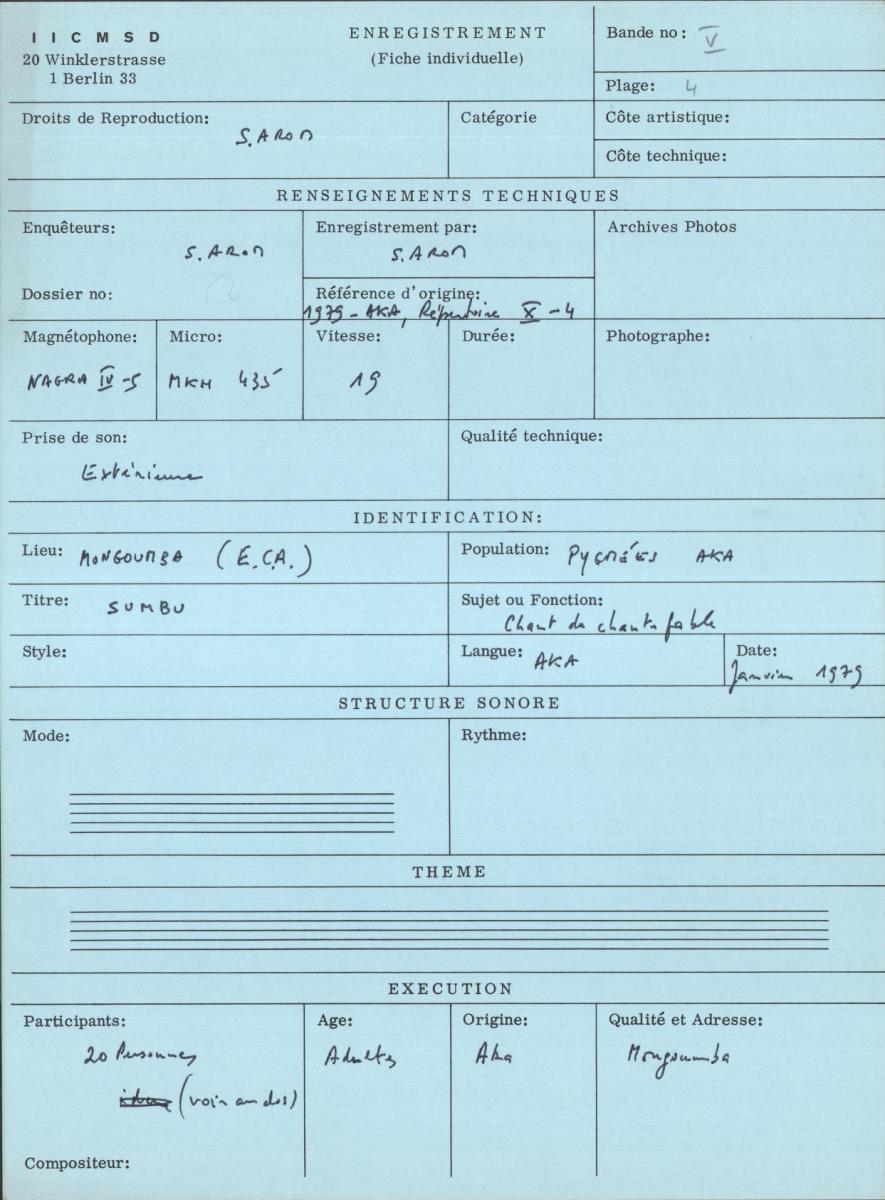 I I C M S D
20 Winklerstrasse
1 Berlin 33
ENREGISTREMENT
(Fiche individuelle)
Bande no: V
Plage: 4
Droits de Reproduction:
S. AROM
Catégorie
Côte artistique:
Côte technique:
RENSEIGNEMENTS TECHNIQUES
Enquêteurs:
S. AROM
Dossier no:
Enregistrement par:
S. AROM
Référence d'origine:
1979 - AKA, Répertoire X - 4
Archives Photos
Magnétophone:
NAGRA IV-S
Micro:
MKH 435
Vitesse:
19
Durée:
Photographe:
Prise de son:
Extérieure
Qualité technique:
IDENTIFICATION:
Lieu: MONGOUMBA (E.C.A.)
Population: PYGMÉES AKA
Titre: SUMBU
Sujet ou Fonction:
Chant de chantefable
Style:
Langue: AKA
Date:
Janvier 1979
STRUCTURE SONORE
Mode:
Rythme:
THEME
EXECUTION
Participants:
20 Personnes
(voir au dos)
Age:
Adultes
Origine:
Aka
Qualité et Adresse:
Mongoumba
Compositeur: